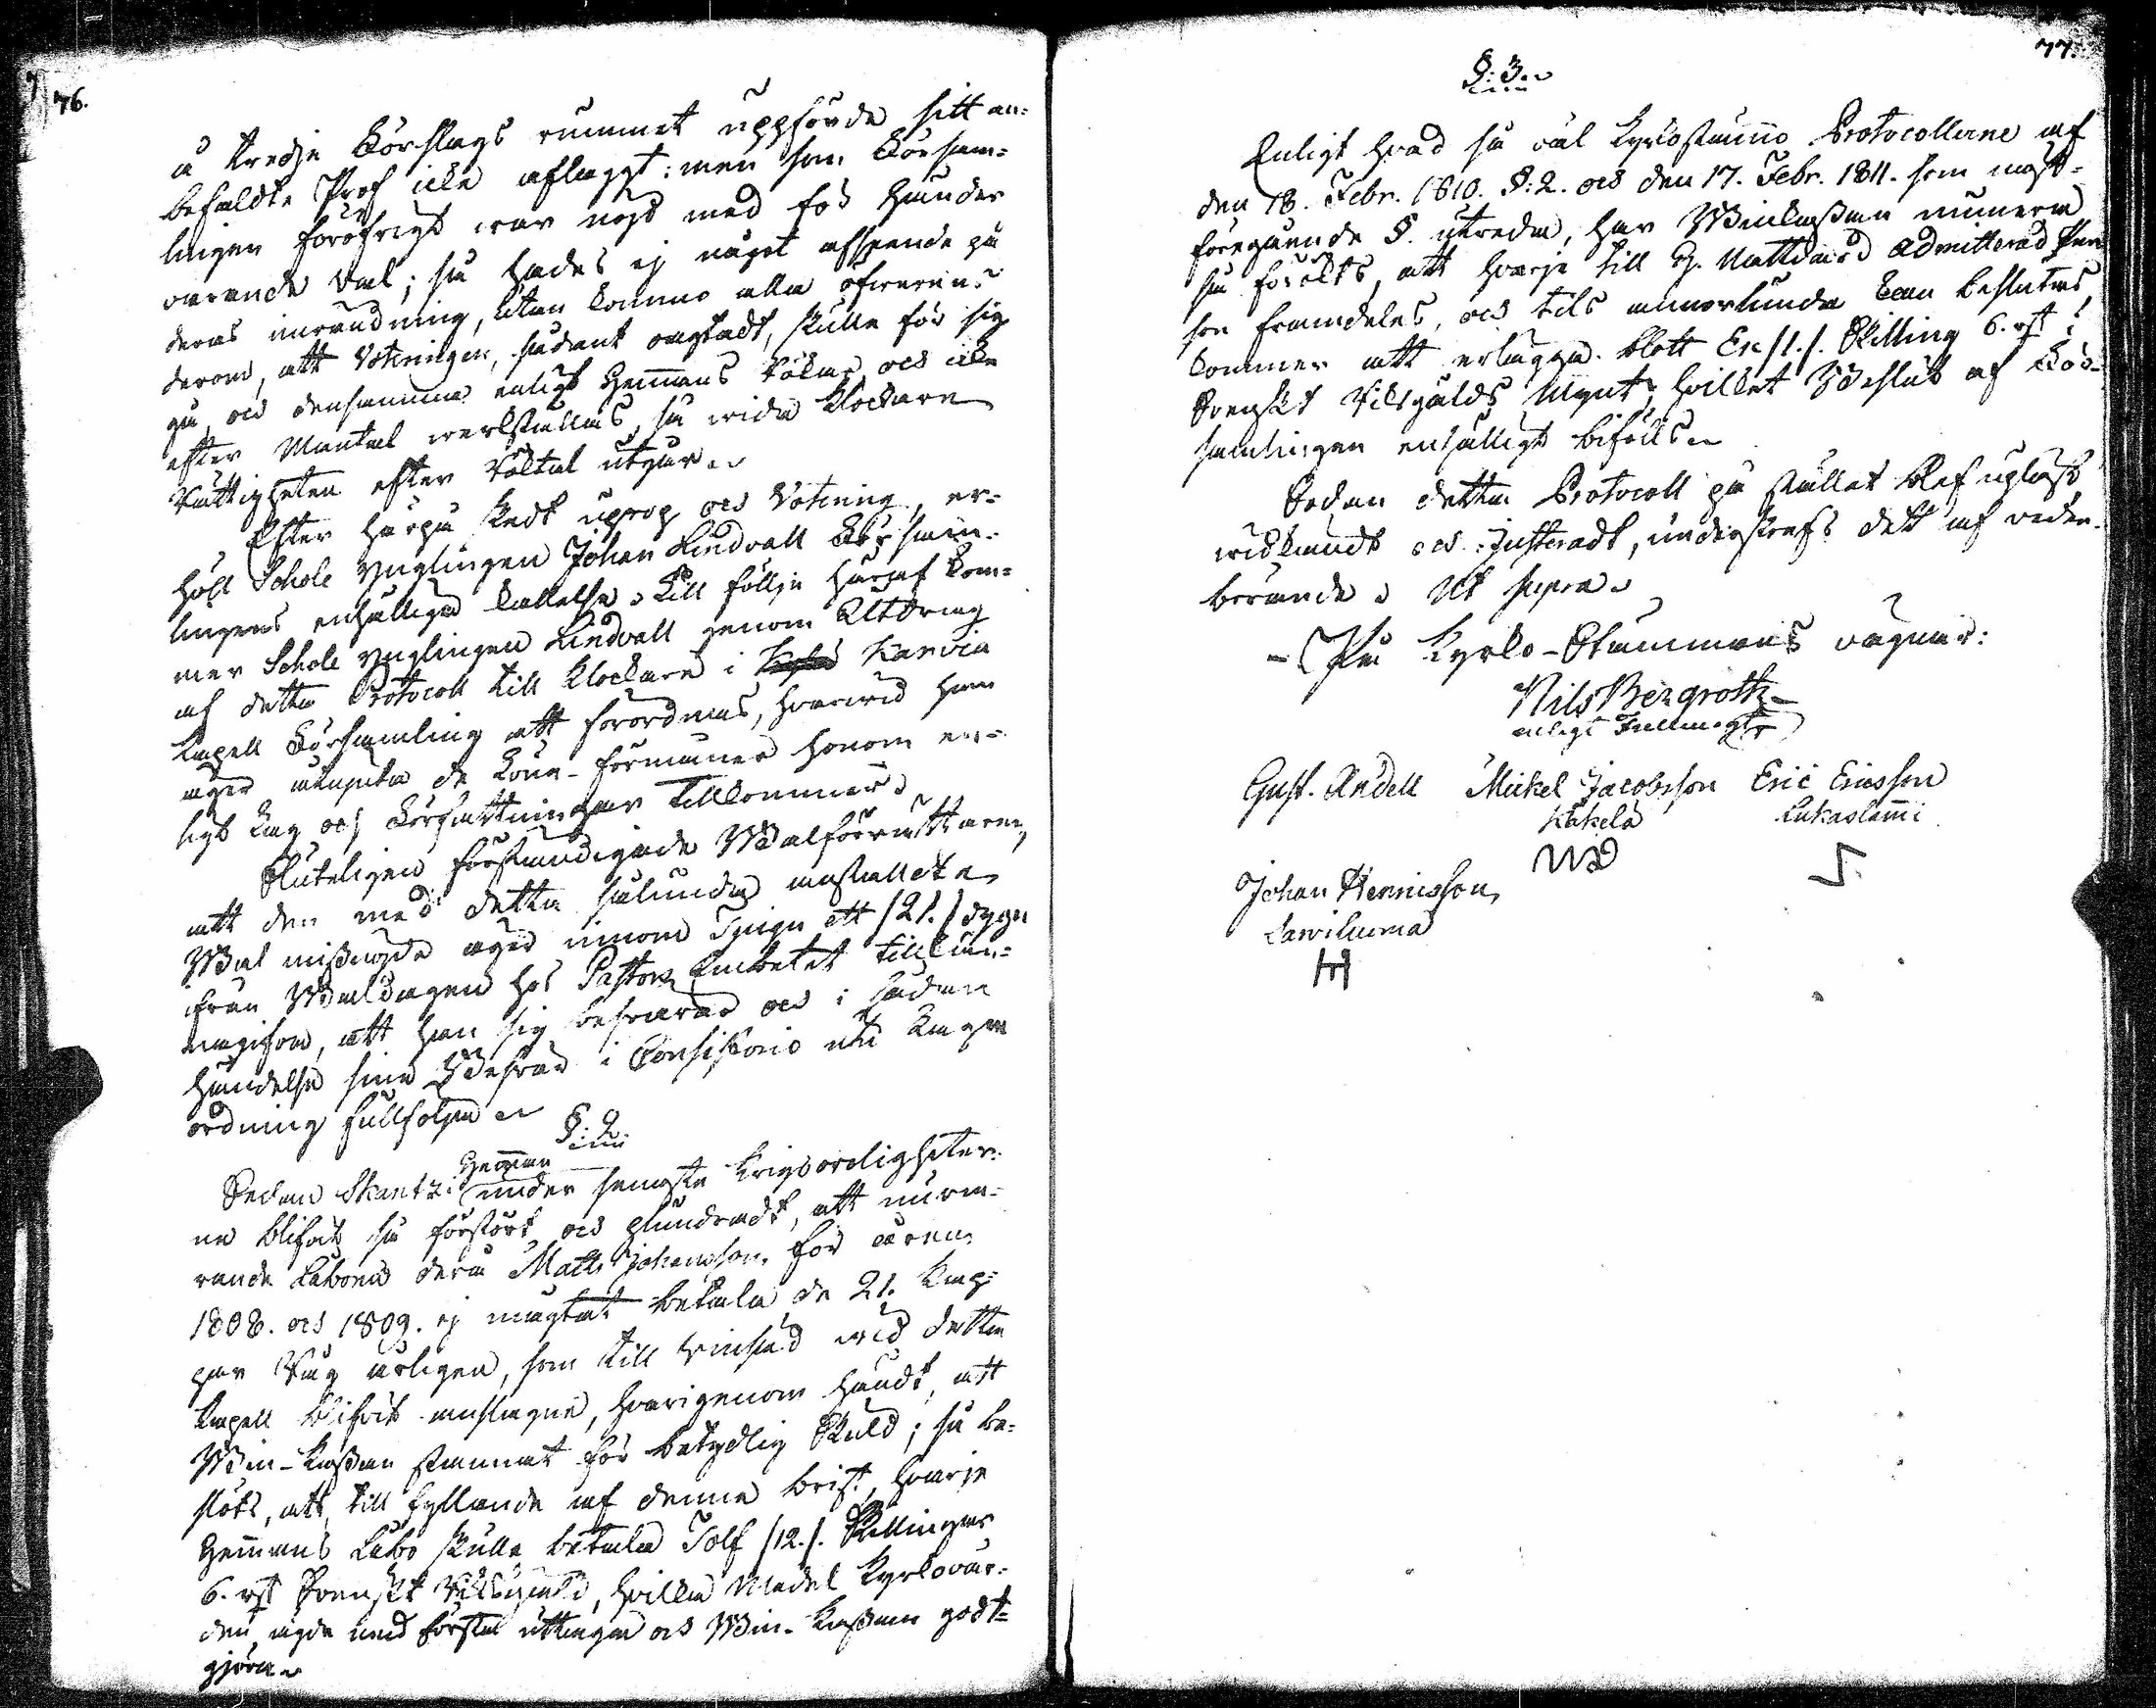 76.
å tredje Församlings rummet uppförde sitt an-
befaldte Prof icke aflaggt: men som Försam-
lingen föröfrigt war nögd med för handen
varande val; så hades ej något afseende på
deras inwändning, utan kommo alla öfwerens
derom, att Voteringen, sådant oagtadt, skulle för sig
gå, och densamma enligt Hemmans Röktal och icke
efter Mantal werkställas, så wida Klockare
Rättigheten efter Röktal utgår.
Efter härpå skedt uprop och Votering, er-
höll Schole Ynglingen Johan Lindvall Försam-
lingens enhälliga kallelse. Till följe häraf kom-
mer Schole Ynglingen Lindvall genom Utdrag
af detta Protocoll till Klockare i Karvia
Kapell Församling att förordnas, hwarwid han
äger åtnjuta de Löne-förmåner honom en-
ligt Lag och Författningar tillkommer.
Sluteligen förständigade Walförrättaren,
att den med detta sålunda anstallte
Wal missnögde äger innom Tjugu ett /21./ dygn
ifrån Waldagen hos Pastors Embetet tillkän-
nagifva, att han sig besvärar och i sådan
händelse sine Beswär i Consistorio uti laga
ordning fullfölja.
§: 2
Sedan Skantzi Hemman under senaste Krigsoroligheter-
ne blifvit så förstört och plundradt, att nuva-
rande Åboen derå Matts Johansson för åren
1808. och 1809. ej mägtat betala de 21. Kap-
par Råg årligen, som till vinsäd wid detta
Kapell blifvit anslagne, hvarigenom händt, att
Win-Kassan stannat för betydlig Skuld; så be-
slöts, att till fyllande af denna brist, hvarje
Hemmans Åbo skulle betala Tolf /12./. Skillingar
6. rst Svenskt Riksgäld, hvilka Medel Kyrkovär-
den ägde med första uttaga och Win-Kassan godt-
göra.
77.
§: 3.
Enligt hvad så väl Kyrkostämmo Protocollerne af
den 18. Febr. 1810. §: 2. och den 17. Febr. 1811. som näst-
föregående §. utreda, har Winkassan numera
så förökts, att hvarje till H. Nattward admitterad Per-
son framdeles, och tils annorlunda kan beslutas,
kommer att erlägga blott En /1./. Skilling 6. rst i
Svenskt Riksgälds Mynt, hvilket Beslut af För-
samlingen enhälligt bifölls.
Sedan detta Protocoll på stället blef upläst,
widkändt och justeradt, underskrefs det af veder-
börande. Ut supra.
På Kyrko-Stämmans vägnar:
Nils Bergroth
enligt Fullmagt
Gust. Andell Mickel Jacobsson Eric Ericsson
Käkelä Lukaslammi
Johan Hennisson
Sarviluoma